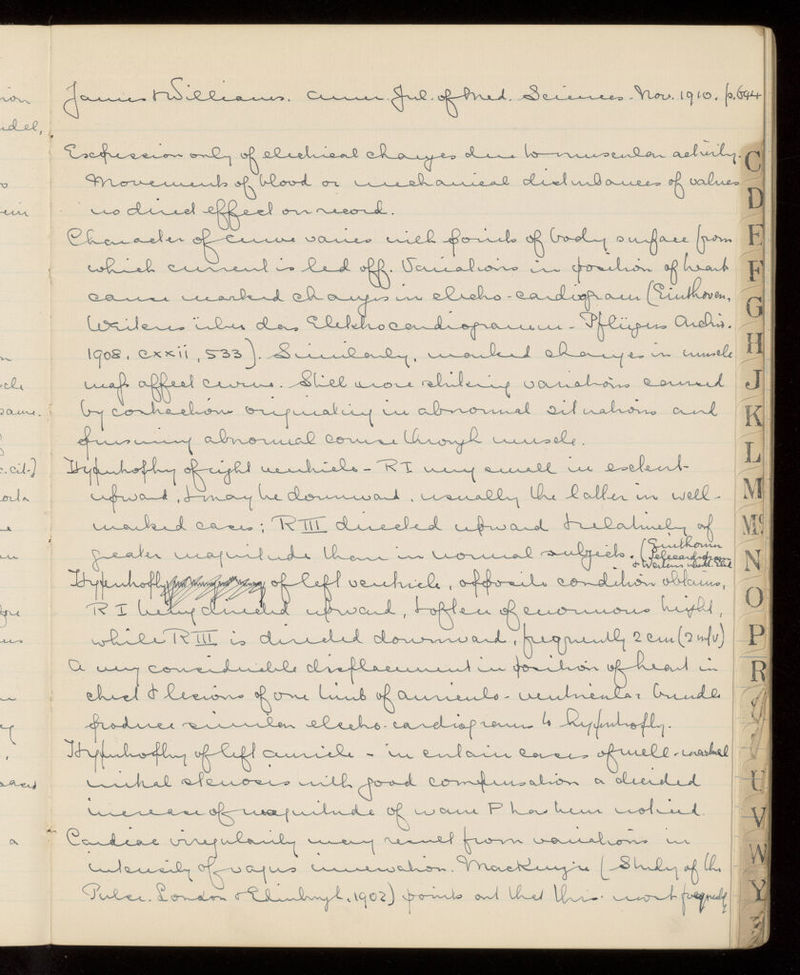 James & Williams. Amer. Jnl. of Med. Sciences. Nov. 1910. p.644
Expression only of electrical changes due to muscular activity.
Movements of blood or mechanical disturbances of valves
no direct effect on record.
Character of curve varies with points of body surface from
which current is led off. Variations in position of heart
cause marked changes in electro-cardiogram (Einthoven,
Weiteres über das Elektrocardiogramm - Pflügers Archiv.
1908, cxxii, 533). Similarly, marked changes in muscle
mass affect curve. Still more striking variations caused
by contractions originating in abnormal situations and
pursuing abnormal course through muscle.
Hypertrophy of right ventricle - R I very small in extent
upward, & may be downward, usually the latter in well-
marked cases; R III directed upward & relatively of
greater magnitude than in normal subjects. (Einthoven
Telecardiogram
& Weiteres
Hypertrophy of left ventricle, opposite condition obtains,
R I being directed upward, & often of enormous height,
while R III is directed downward, frequently 2 cm (2 m/v)
A very considerable displacement in position of heart in
chest & lesions of one limb of auriculo-ventricular bundle
produce similar electro-cardiograms to hypertrophy.
Hypertrophy of left auricle - in certain cases of well-marked
mitral stenosis with good compensation a decided
increase of magnitude of wave P has been noticed.
Cardiac irregularity may result from variations in
intensity of vagus innervation. Mackenzie (Study of the
Pulse. London & Edinburgh, 1902) points out that this most frequently
C
D
E
F
G
H
J
K
L
M
Mc
N
O
P
R
U
V
W
Y
ion
udel,
ein
same.
. cit.)